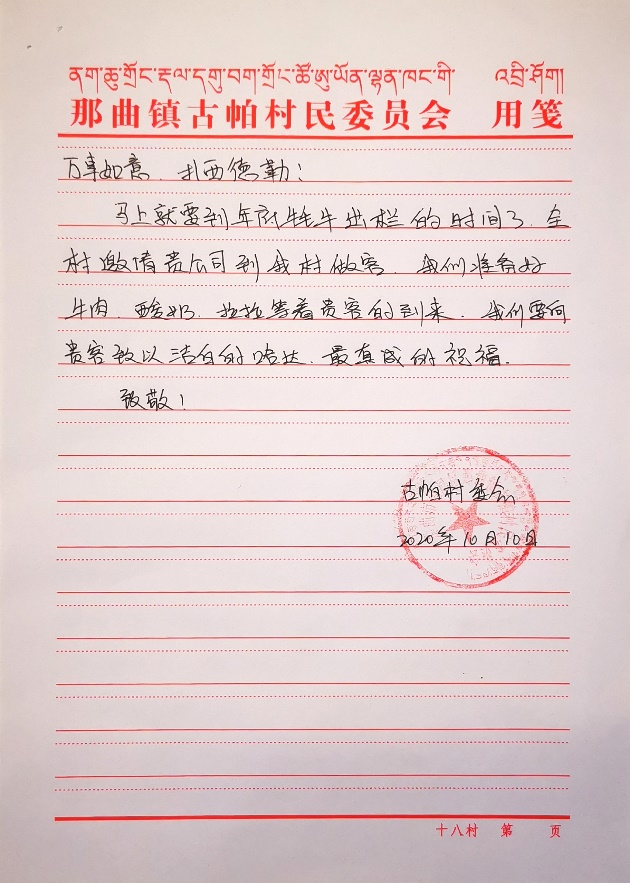 ནག་ཆུ་གྲོང་རྡལ་དགུ་བག་གྲོང་ཚོ་ཨུ་ཡོན་ལྷན་ཁང་གི་ འབྲི་ཤོག།
那曲镇古帕村民委员会 用笺
万事如意、扎西德勒！
马上就要到年底牦牛出栏的时间了，全
村邀请贵公司到我村做客，我们准备好
牛肉、酸奶、拉拉等着贵客的到来，我们要向
贵客致以洁白的哈达、最真诚的祝福。
致敬！
古帕村委会
2020年10月10日
十八村 第 页